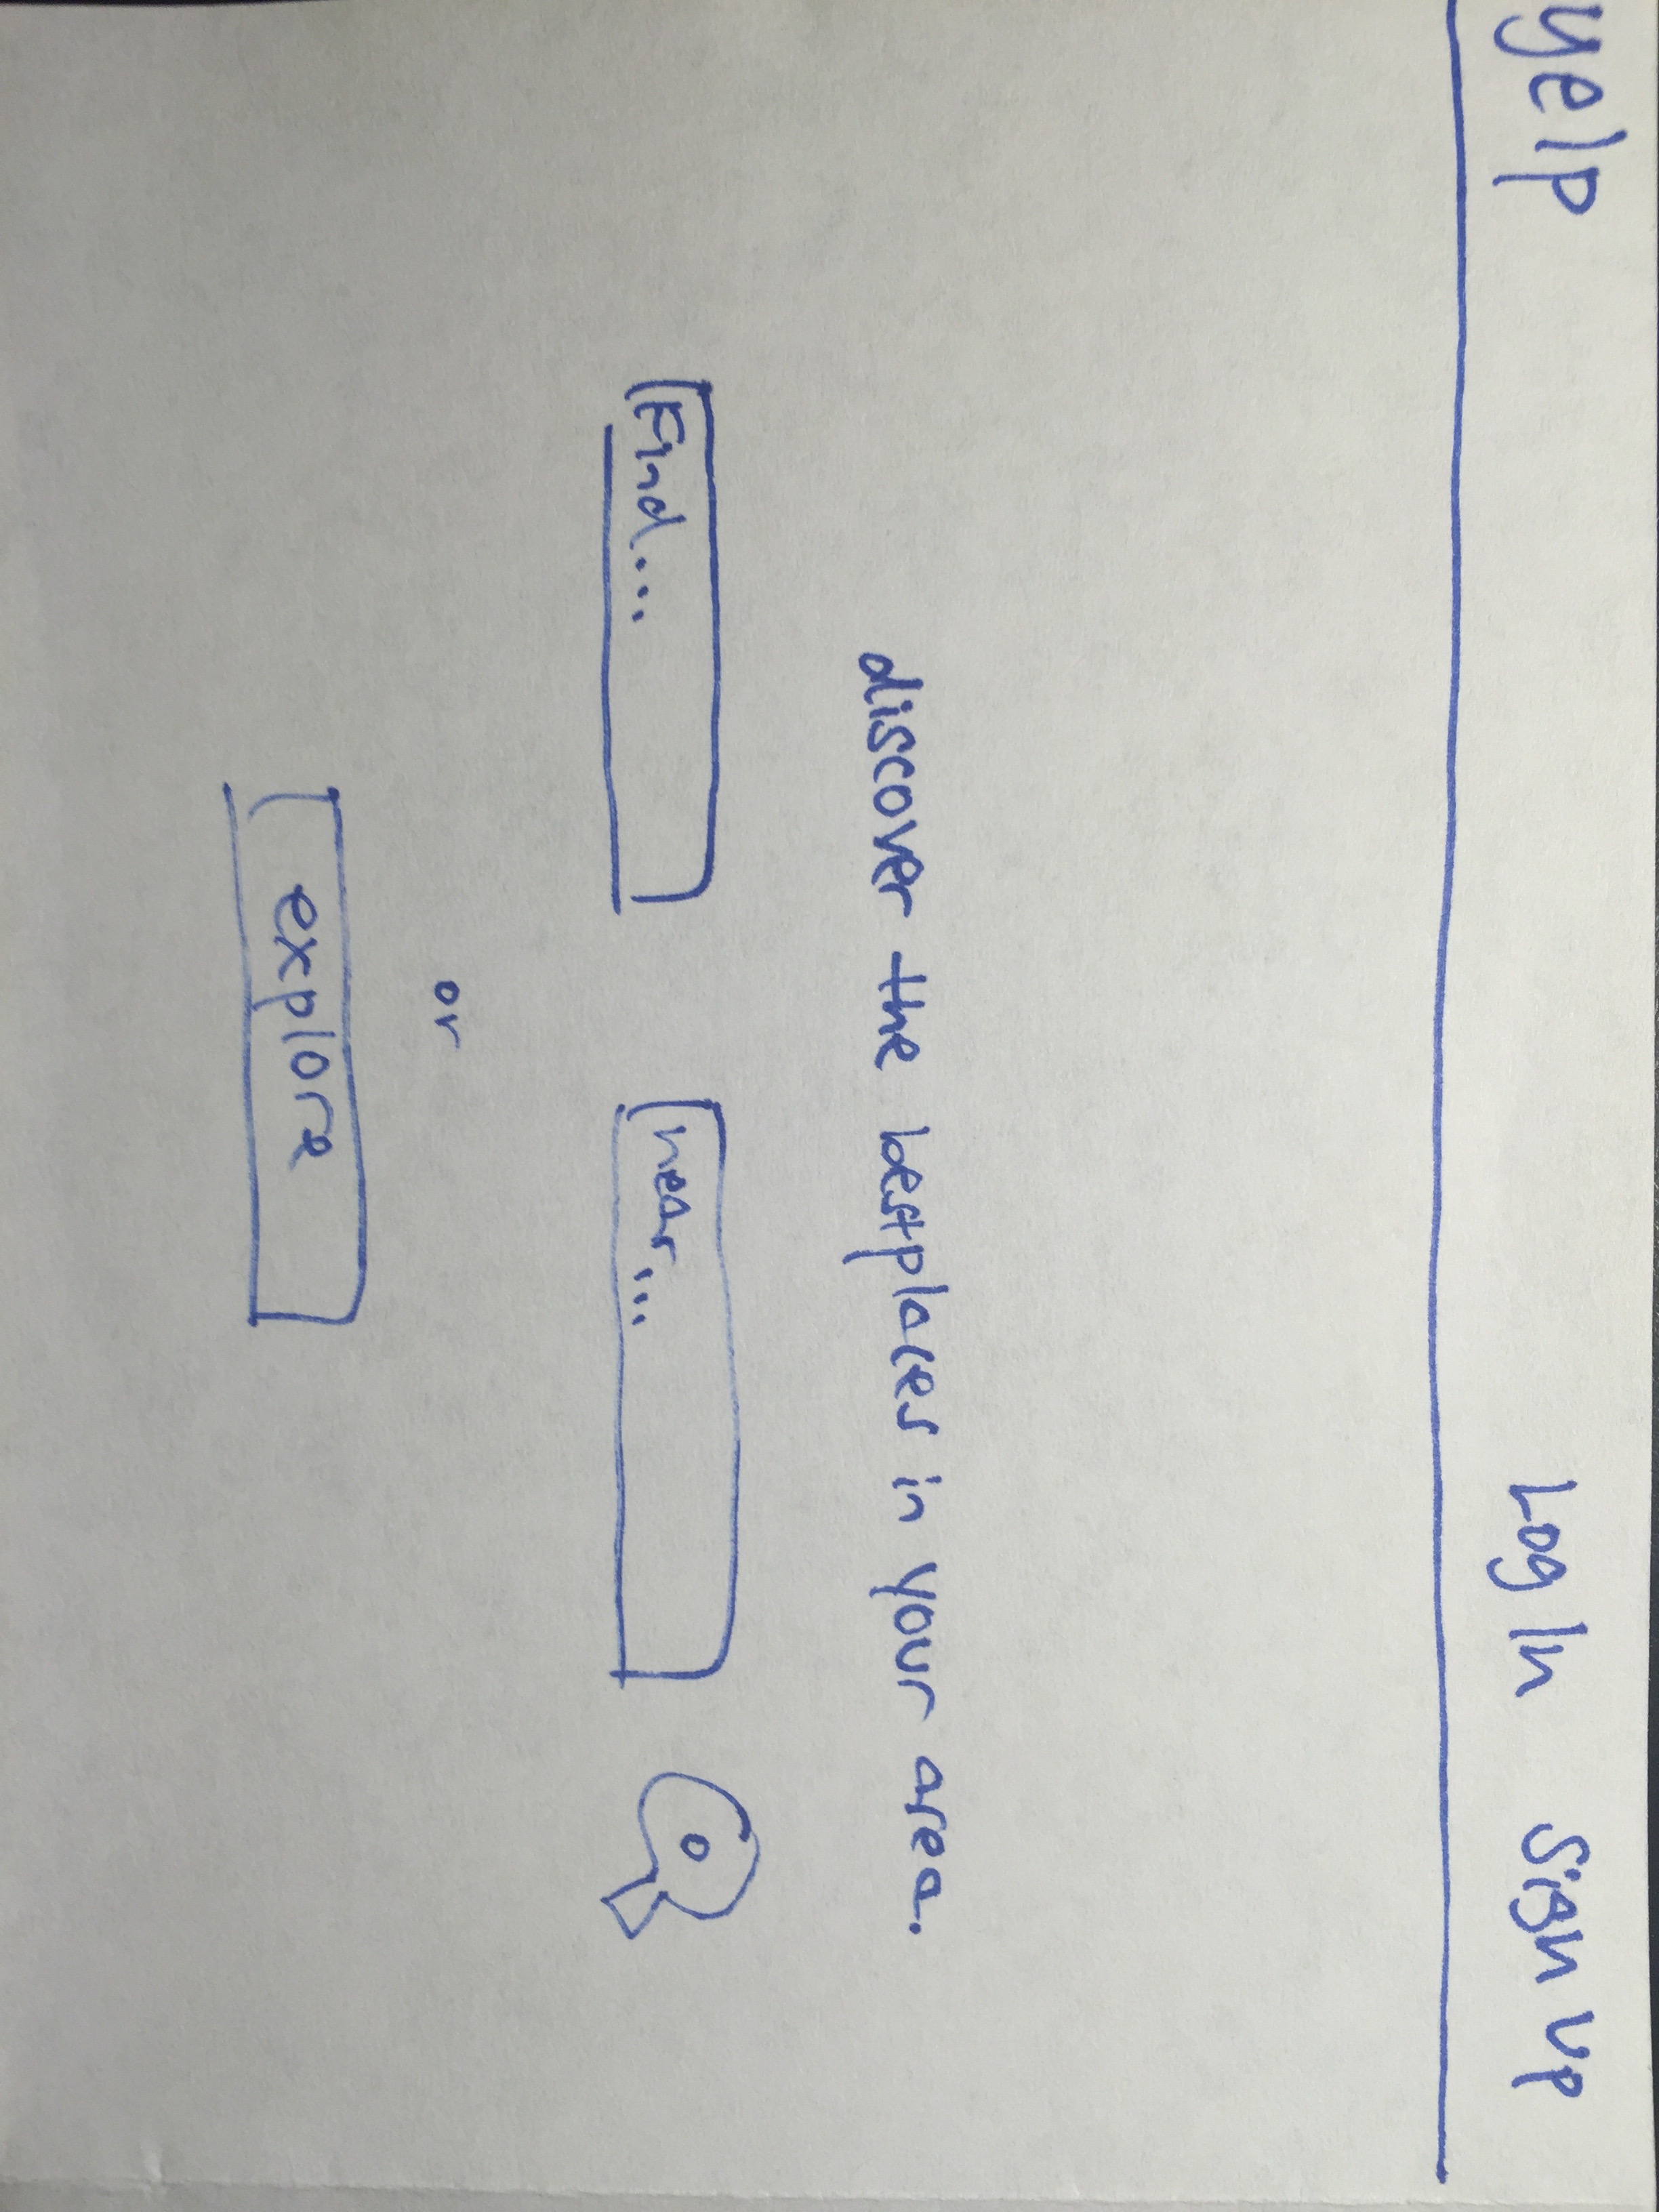 yelp Log In Sign up
discover the best places in your area.
Find... near...
or
explore